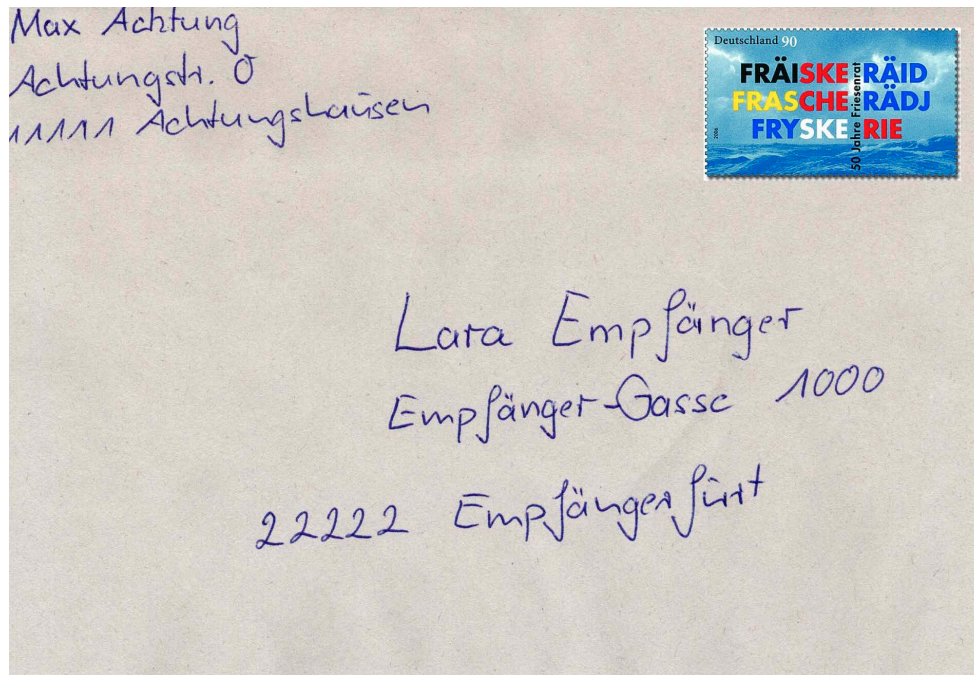 Max Achtung
Achtungstr. 0
11111 Achtungshausen
Deutschland 90
FRÄISKE RÄID
FRASCHE RÄDJ
FRYSKE RIE
50 Jahre Friesenrat
2006
Lara Empfänger
Empfänger-Gasse 1000
22222 Empfängerfürt